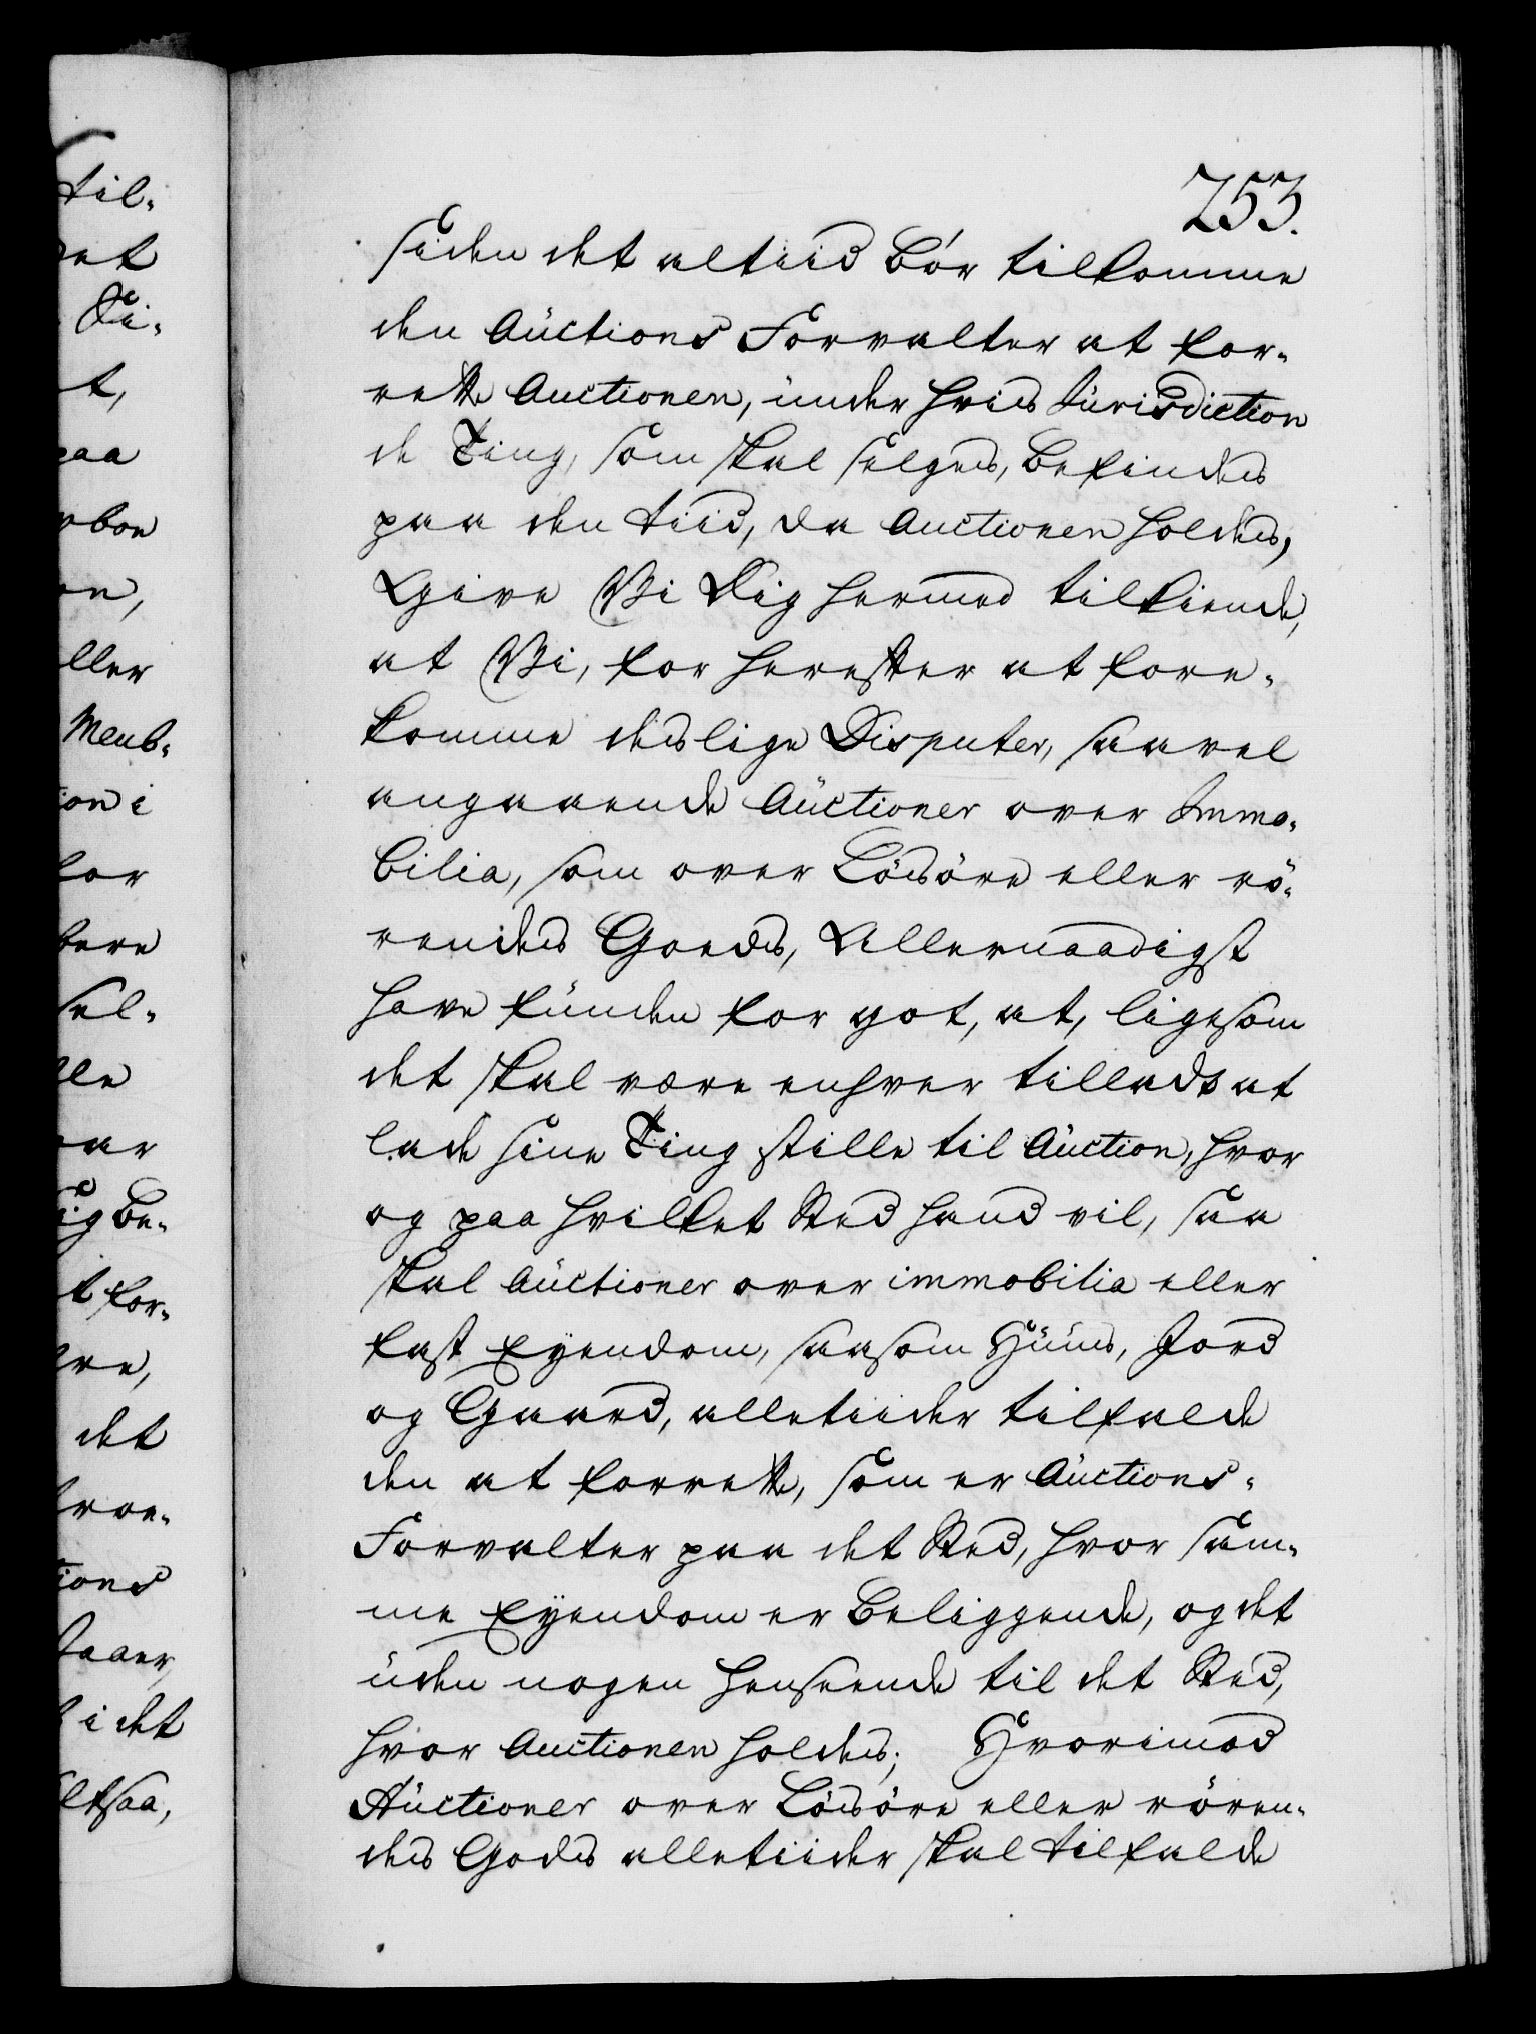 til-
det
Di-
t,
paa
on,
ller
Meub-
ion i
for
bere
sel-
lle
ar
ig be-
t for-
re,
det
ions
i det
altsaa,
253.
siden det altiid bör tilkomme
den Auctions Forvalter at for-
rette Auctionen, under hvis Jurisdiction
de Ting, som skal selges, befindes
paa den tiid, da Auctionen holdes,
Give Vi Dig hermed tilkiende,
at Vi, for herefter at fore-
komme deslige Disputer, saavel
angaaende Auctioner over Immo-
bilia, som over Lösöre eller rö-
rendes Goeds, Allernaadigst
have funden for got, at, ligesom
det skal være enhver tilladt at
lade sine Ting stille til Auction, hvor
og paa hvilket Sted hand vil, saa
skal Auctioner over immobilia eller
fast Eyendom, saasom Huus, Jord
og Gaard, alletiider tilfalde
den at forrette, som er Auctions-
Forvalter paa det Sted, hvor sam-
me Eyendom er beliggende, og det
uden nogen henseende til det Sted,
hvor Auctionen holdes; Hvorimod
Auctioner over Lösöre eller rören-
des Godes alletiider skal tilfalde